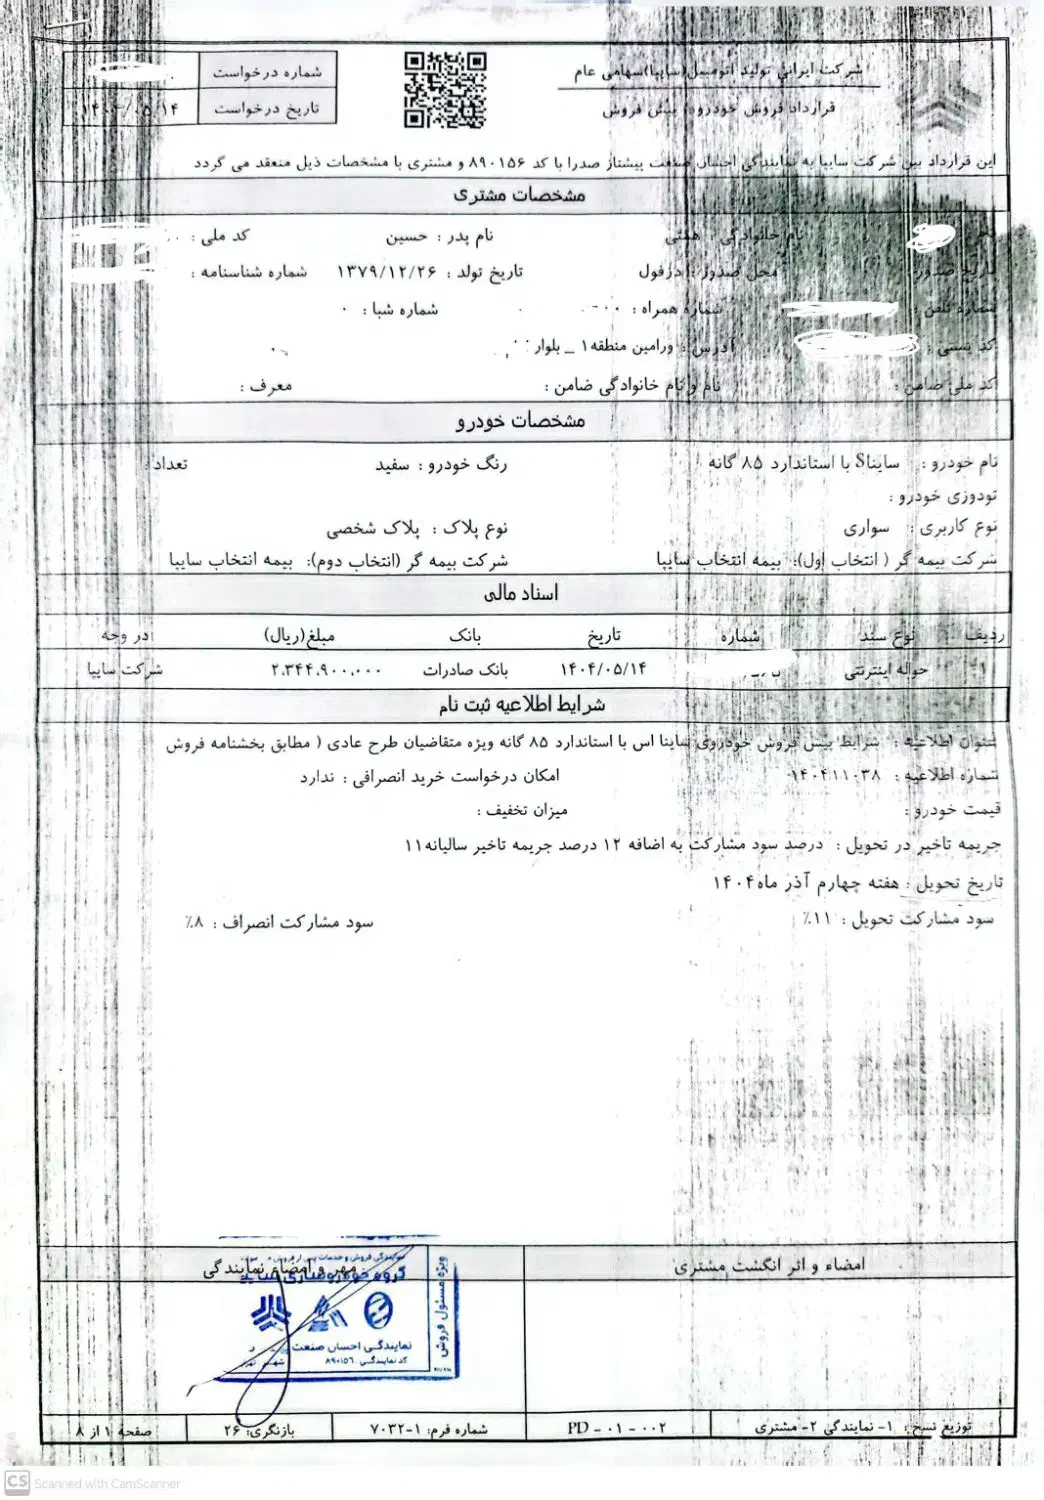 شرکت ایرانی تولید اتومبیل(سایپا)سهامی عام
قرارداد فروش خودرو - پیش فروش
شماره درخواست
تاریخ درخواست ۱۴۰۴/۰۵/۱۴
این قرارداد بین شرکت سایپا به نمایندگی احسان صنعت پیشتاز صدرا با کد ۸۹۰۱۵۶ و مشتری با مشخصات ذیل منعقد می گردد
مشخصات مشتری
نام خانوادگی نام پدر : حسین کد ملی :
تاریخ صدور محل صدور : دزفول تاریخ تولد : ۱۳۷۹/۱۲/۲۶ شماره شناسنامه :
شماره تلفن : شماره همراه : شماره شبا : ۰
کد پستی : آدرس : ورامین منطقه۱ _ بلوار
کد ملی ضامن : نام و نام خانوادگی ضامن : معرف :
مشخصات خودرو
نام خودرو : سایناS با استاندارد ۸۵ گانه رنگ خودرو : سفید تعداد :
تودوزی خودرو :
نوع کاربری : سواری نوع پلاک : پلاک شخصی
شرکت بیمه گر ( انتخاب اول): بیمه انتخاب سایپا شرکت بیمه گر (انتخاب دوم): بیمه انتخاب سایپا
اسناد مالی
ردیف نوع سند شماره تاریخ بانک مبلغ(ریال) در وجه
۱ حواله اینترنتی ۱۴۰۴/۰۵/۱۴ بانک صادرات ۲،۳۴۴،۹۰۰،۰۰۰ شرکت سایپا
شرایط اطلاعیه ثبت نام
عنوان اطلاعیه : شرایط پیش فروش خودروی ساینا اس با استاندارد ۸۵ گانه ویژه متقاضیان طرح عادی ( مطابق بخشنامه فروش
شماره اطلاعیه : ۱۴۰۴۱۱۰۳۸ امکان درخواست خرید انصرافی : ندارد
قیمت خودرو : میزان تخفیف :
جریمه تاخیر در تحویل : درصد سود مشارکت به اضافه ۱۲ درصد جریمه تاخیر سالیانه۱۱
تاریخ تحویل : هفته چهارم آذر ماه۱۴۰۴
سود مشارکت تحویل : ۱۱٪ سود مشارکت انصراف : ۸٪
امضاء و اثر انگشت مشتری مهر و امضاء نمایندگی
نمایندگی فروش و خدمات پس از فروش
گروه خودروسازی سایپا
ویژه مسئول فروش
نمایندگی احسان صنعت
کد نمایندگی ۸۹۰۱۵۶
توزیع نسخ: ۱- نمایندگی ۲- مشتری PD - ۰۱ - ۰۰۲ شماره فرم: ۱-۷۰۳۲ بازنگری: ۲۶ صفحه ۱ از ۸
CS Scanned with CamScanner